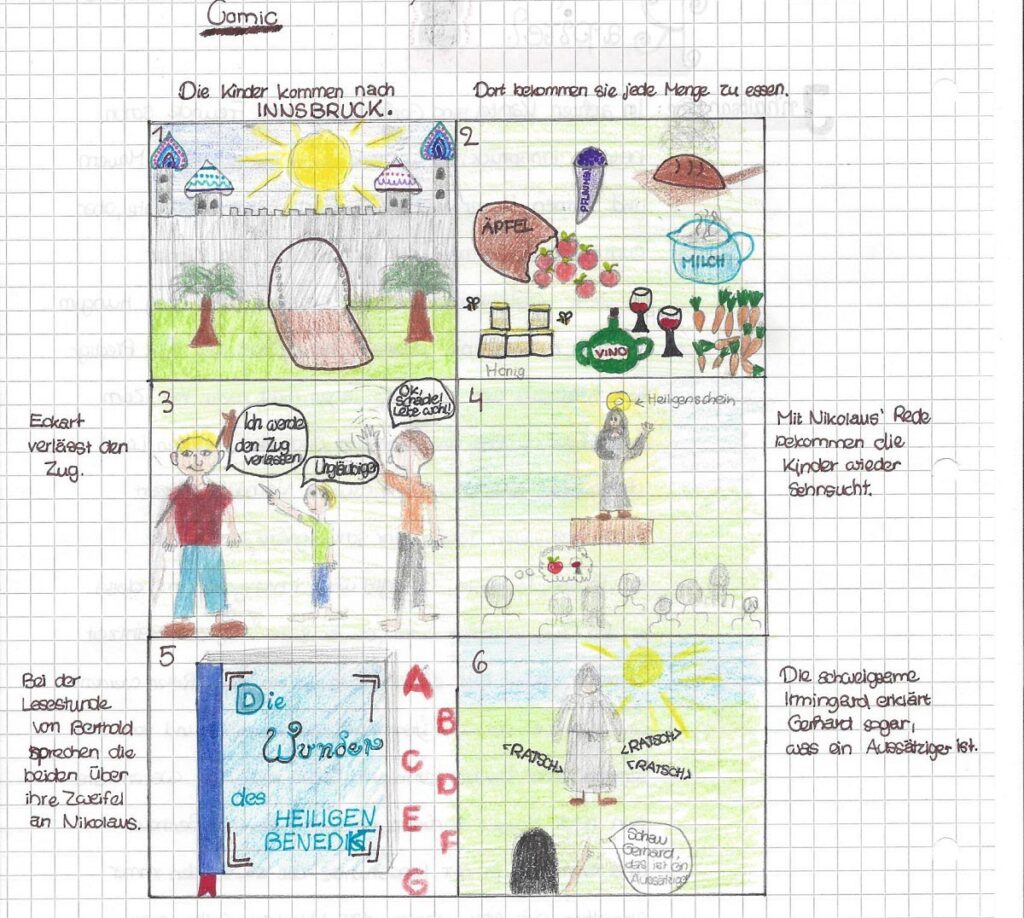 Comic
Die Kinder kommen nach
INNSBRUCK.
Dort bekommen sie jede Menge zu essen.
1
2
ÄPFEL
PFLAUMEN
MILCH
Honig
VINO
Eckart
verlässt den
Zug.
3
Ich werde
den Zug
verlassen
Ungläubiger
Ok,
Schade!
Lebe wohl!
4
Heiligenschein
Mit Nikolaus' Rede
bekommen die
Kinder wieder
Sehnsucht.
Bei der
Lesestunde
von Berthold
sprechen die
beiden über
ihre Zweifel
an Nikolaus.
5
Die
Wunder
des
HEILIGEN
BENEDIKT
A
B
C
D
E
F
G
6
<RATSCH>
<RATSCH>
<RATSCH>
Schau
Gerhard,
das ist ein
Aussätziger
Die schweigsame
Irmingard erklärt
Gerhard sogar,
was ein Aussätziger ist.